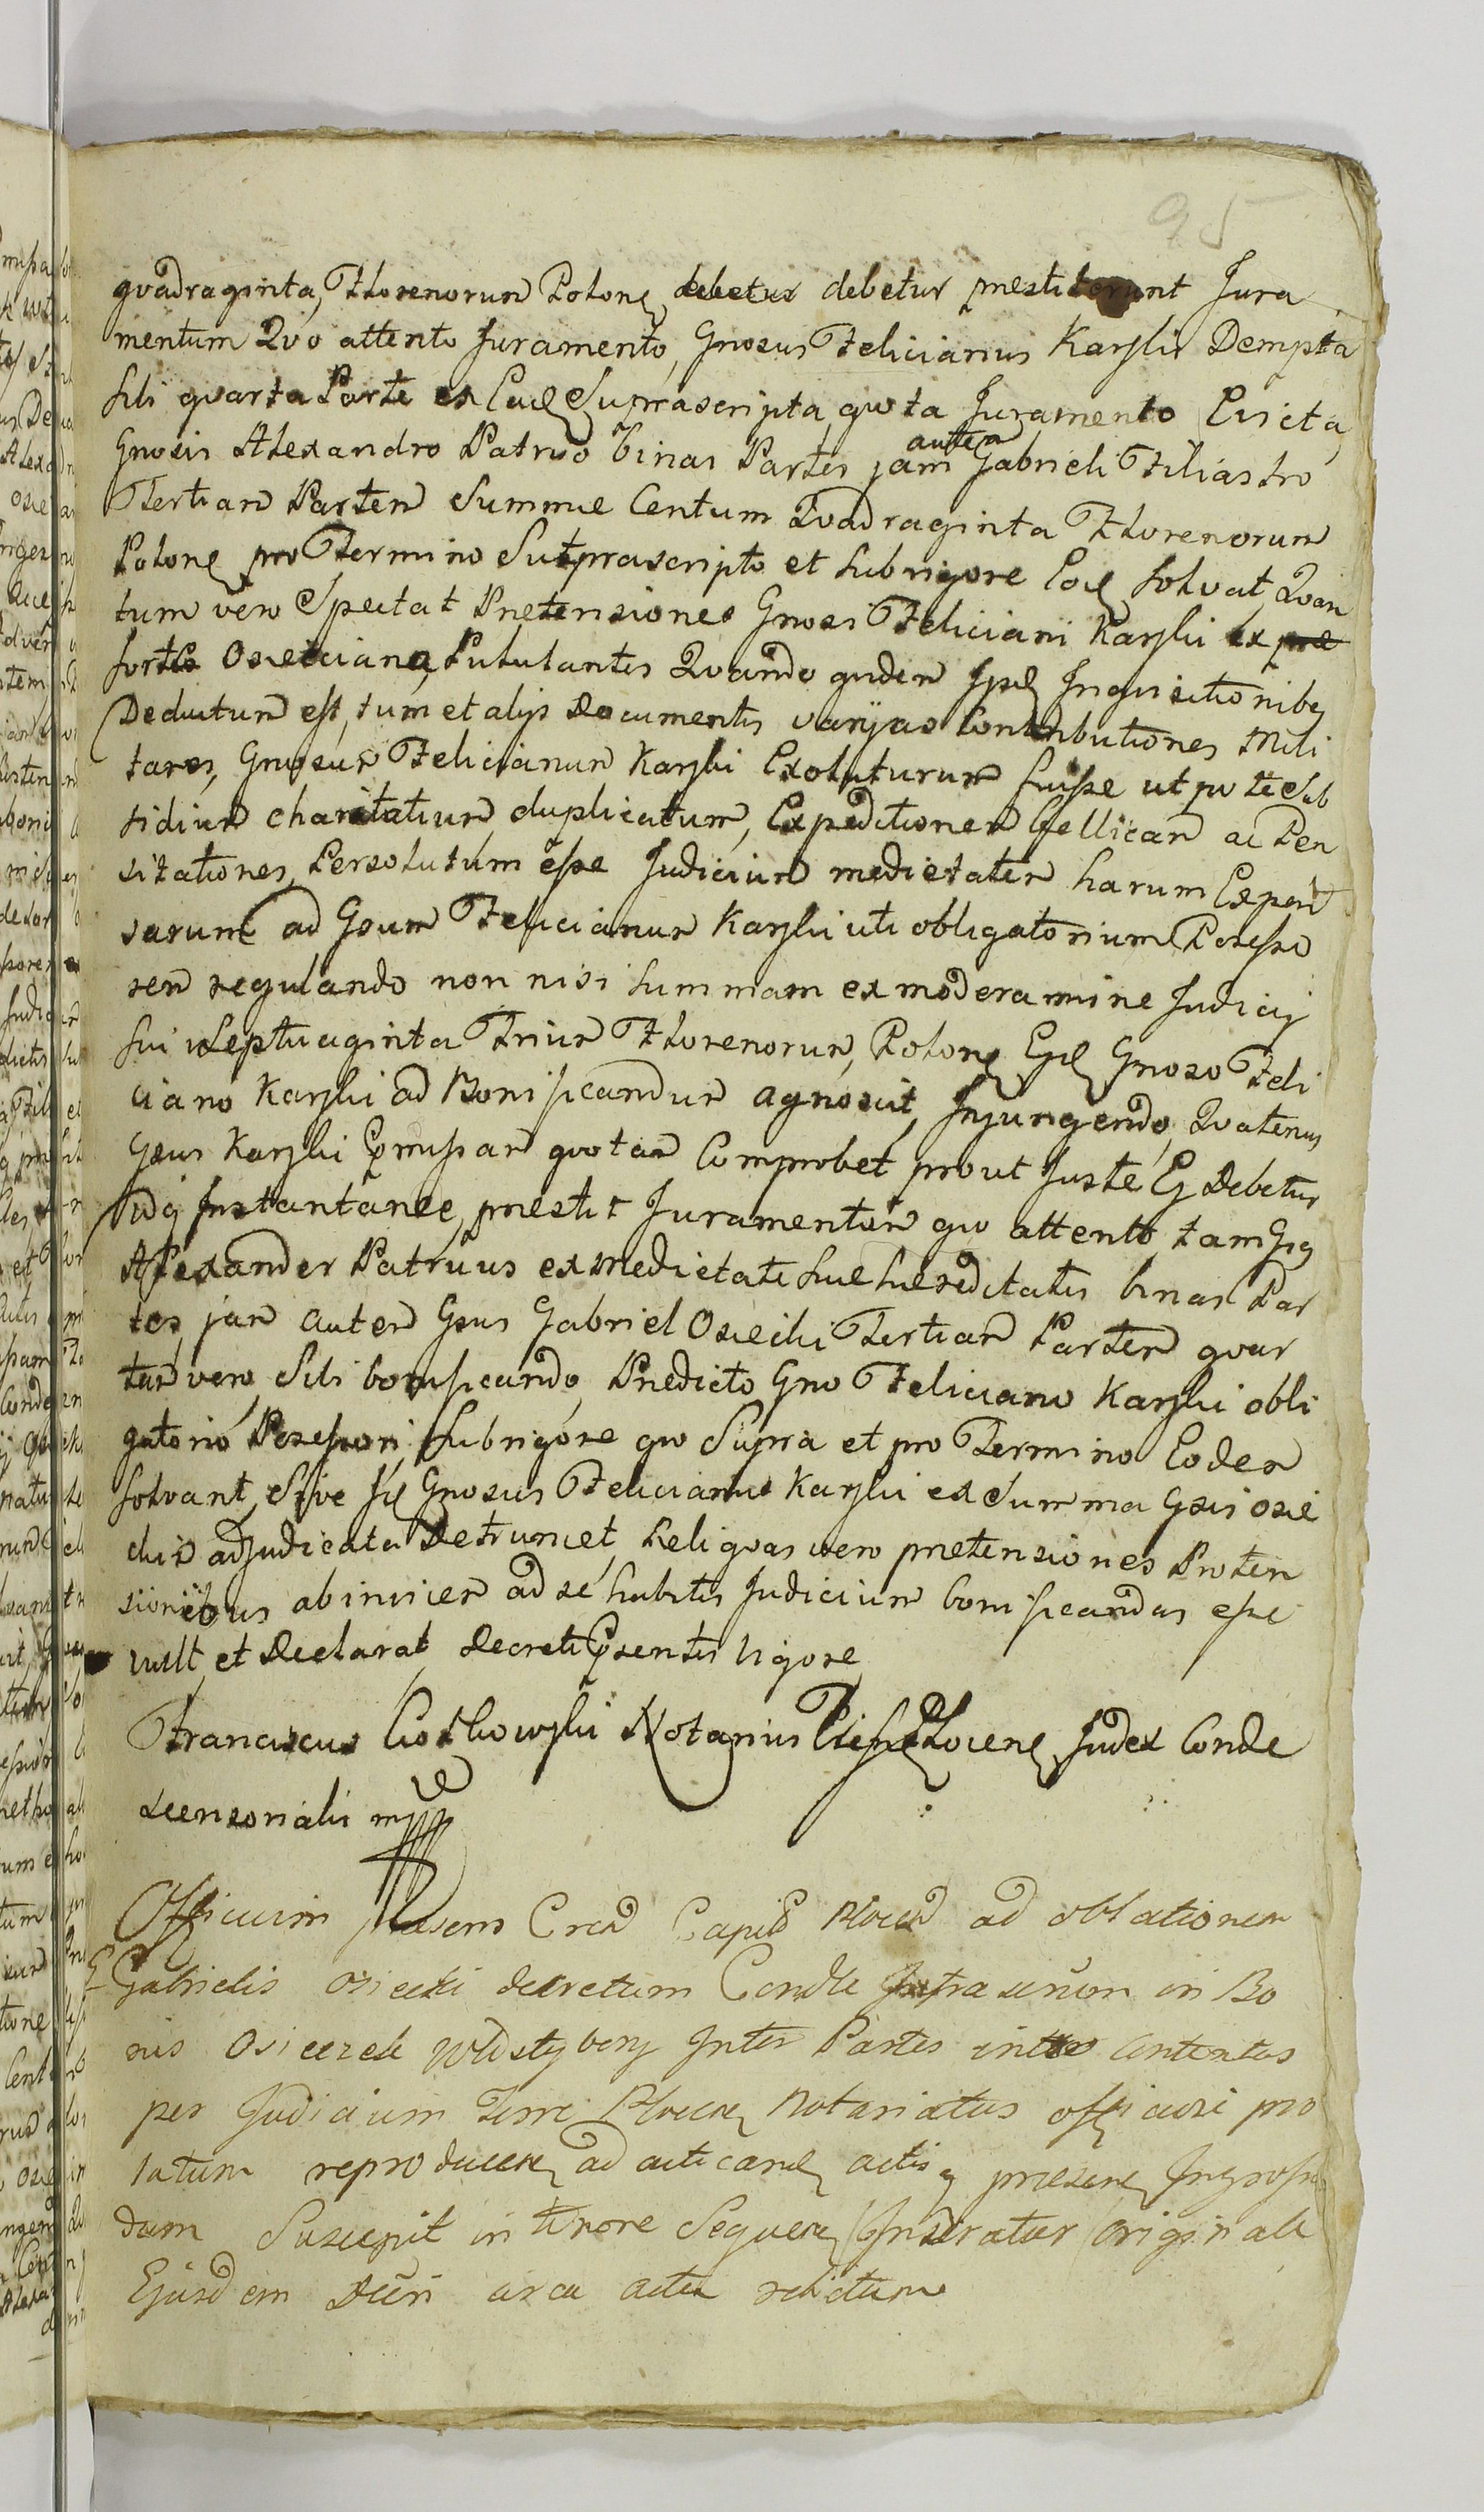 95
qvadraginta, Florenorum Polonę debetur debetur prestiterunt Jura
mentum Qvo attento Juramento, Gnosus Felicianus Karski Dempta
sibi qvarta Parte ex Suprascripta qvota Juramento Evicta,
Gnosis Alexandro Patruo binas Partes jam autem Gabrieli Filiastro
Tertiam Partem Summæ Centum Qvadraginta Florenorum
Polonę pro Termino Suprascripto et sub rigore solvat, Qvan
tum vero Spectat Pretensiones Gnosi Feliciani Karski ex præ
Sortis Osieciana Pululantes Qvando qvidem Inqvisitionibq
Deductum est, tum et alijs Documentis varijas Contributiones Mili
tares, Gnosum Felicianum Karski Exoluturum fuisse utpote Sub
sidium charitativum duplicatum, Expeditionem bellicam ac Pen
sitationes, Persolutum esse Judicium medietatem harum Expen
sarum ad Gsum Felicianum Karski uti obligatorium Posesso
rem regulando non nisi summam ex moderamine Judicij
sui Septuaginta Trium Florenorum, Polonę Gnoso Feli
ciano Karski ad Bonificandum agnoscit, Injungendo, Qvatenus
Gsus Karski qvotam Comprobet prout Juste Debetur
Idq Instantanee, prestit Juramentum qvo attento, tam
Alexander Patruus ex Medietate suæ hæreditatis binas Par
tes, jam autem Gsus Gabriel Osiecki Tertiam Partem qvar
tam vero, Sibi bonificando, Predicto Gno Feliciano Karski obli
gatorio Posessori, Sub rigore qvo Supra et pro Termino Eodem
solvant, Sive Gnosus Felicianus Karski ex Summa Gsis Osie
ckis adjudicata Detruncet, Reliqvas vero pretensiones Preten
sionibus ab invicem ad se habitis Judicium bonificandas esse
vult, et Declarat, Decreti Psentis vigore
Franciscus Notarius Judex Conde
scensorialis mpp
Officium præsens Capit ad oblationem
G Gabrielis Osiecki decretum Infrascriptum in Bo
nis Osieczek Inter Partes intro contentas
per Judicium Terræ Notariatus officiosi pro
latum reproducen ad acticand actis q præsen Ingrossan
dum Suscepit in tenore Sequen (Inseratur) originale
Ejusdem Decri circa acta relictum